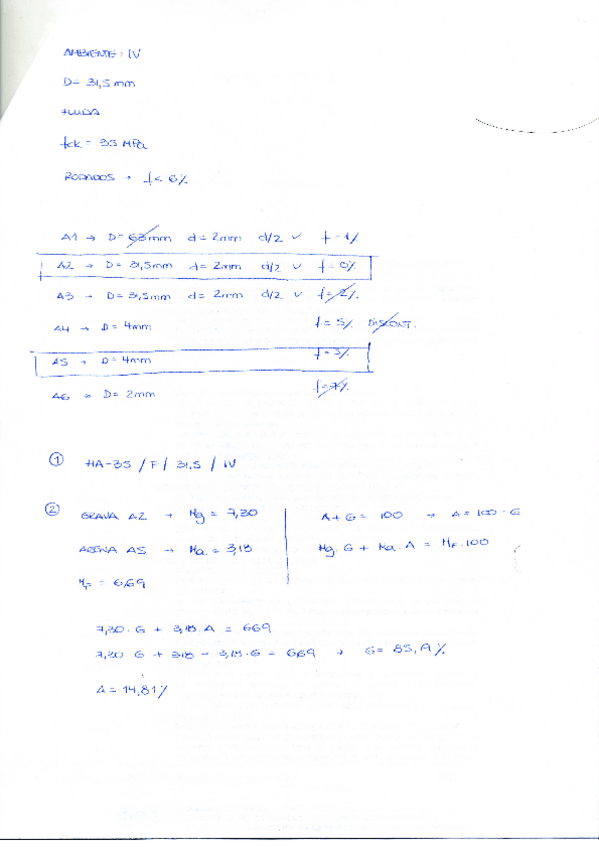 AMBIENTE: IV
D = 31,5 mm
FLUIDA
fck = 35 MPa
RODADOS → f < 6%
A1 → D = 63mm d = 2mm d/2 ✓ f = 1%
A2 → D = 31,5mm d = 2mm d/2 ✓ f = 0%
A3 → D = 31,5mm d = 2mm d/2 ✓ f = 2%
A4 → D = 4mm f = 5% DISCONT.
A5 → D = 4mm f = 3%
A6 → D = 2mm f = 7%
① HA-35 / F / 31,5 / IV
② GRAVA A2 → Mg = 7,30
ARENA A5 → Ma = 3,18
MF = 6,69
A + G = 100 → A = 100 - G
Mg · G + Ma · A = MF · 100
7,30 · G + 3,18 · A = 669
7,30 G + 318 - 3,18 · G = 669 → G = 85,19%
A = 14,81%